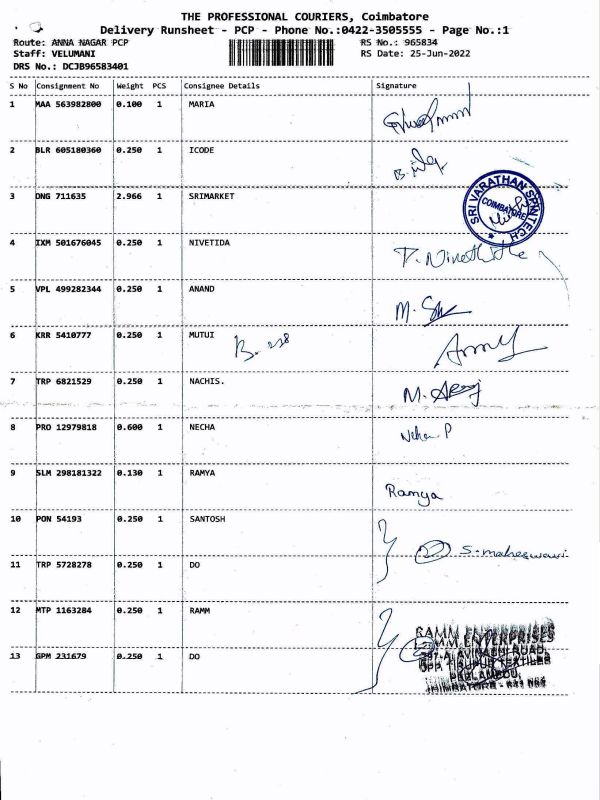 THE PROFESSIONAL COURIERS, Coimbatore
Delivery Runsheet - PCP - Phone No.:0422-3505555 - Page No.:1
Route: ANNA NAGAR PCP RS No.: 965834
Staff: VELUMANI RS Date: 25-Jun-2022
DRS No.: DCJB96583401
S No Consignment No Weight PCS Consignee Details Signature
1 MAA 563982800 0.100 1 MARIA
2 BLR 605180360 0.250 1 ICODE
3 DNG 711635 2.966 1 SRIMARKET
SRI VARATHAN SPINTECH
COIMBATORE
4 IXM 501676045 0.250 1 NIVETIDA
5 VPL 499282344 0.250 1 ANAND
6 KRR 5410777 0.250 1 MUTUI
7 TRP 6821529 0.250 1 NACHIS.
8 PRO 12979818 0.600 1 NECHA
9 SLM 298181322 0.130 1 RAMYA
Ramya
10 PON 54193 0.250 1 SANTOSH
S. maheswari
11 TRP 5728278 0.250 1 DO
12 MTP 1163284 0.250 1 RAMM
RAMM ENTERPRISES
13 GPM 231679 0.250 1 DO